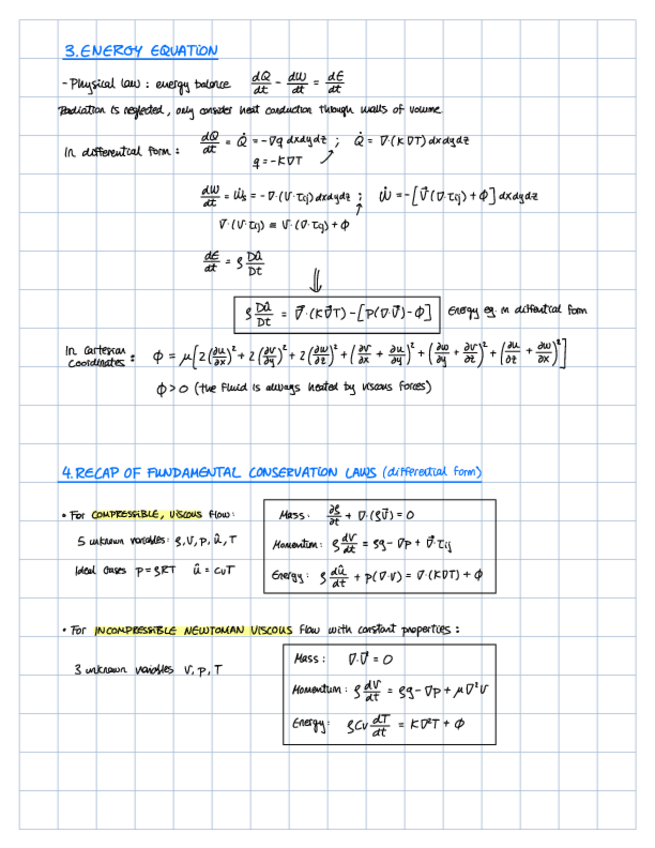 3. ENERGY EQUATION
- Physical law : energy balance dQ/dt - dW/dt = dE/dt
Radiation is neglected, only consider heat conduction through walls of volume
In differential form : dQ/dt = Q̇ = -∇q dxdydz ; Q̇ = ∇·(K∇T) dxdydz
q = -K∇T
dW/dt = Ẇs = -∇·(V·τij) dxdydz ; Ẇ = -[V⃗(∇·τij) + ϕ] dxdydz
∇·(V·τij) ≡ V·(∇·τij) + ϕ
dE/dt = ρ Dû/Dt
⇓
ρ Dû/Dt = ∇⃗·(K∇⃗T) - [P(∇·V⃗) - ϕ] Energy eq. in differential form
In Cartesian Coordinates : ϕ = μ[2(∂u/∂x)² + 2(∂v/∂y)² + 2(∂w/∂z)² + (∂v/∂x + ∂u/∂y)² + (∂w/∂y + ∂v/∂z)² + (∂u/∂z + ∂w/∂x)²]
ϕ > 0 (the fluid is always heated by viscous forces)
4. RECAP OF FUNDAMENTAL CONSERVATION LAWS (differential form)
• For COMPRESSIBLE, VISCOUS flow:
5 unknown variables: ρ, V, p, û, T
Ideal Gases p = ρRT û = cvT
Mass: ∂ρ/∂t + ∇·(ρV⃗) = 0
Momentum: ρ dV/dt = ρg - ∇p + ∇⃗·τij
Energy: ρ dû/dt + p(∇·V) = ∇·(K∇T) + ϕ
• For INCOMPRESSIBLE NEWTONIAN VISCOUS flow with constant properties :
3 unknown variables V, p, T
Mass: ∇·V⃗ = 0
Momentum: ρ dV/dt = ρg - ∇p + μ∇²V
Energy: ρcv dT/dt = K∇²T + ϕ